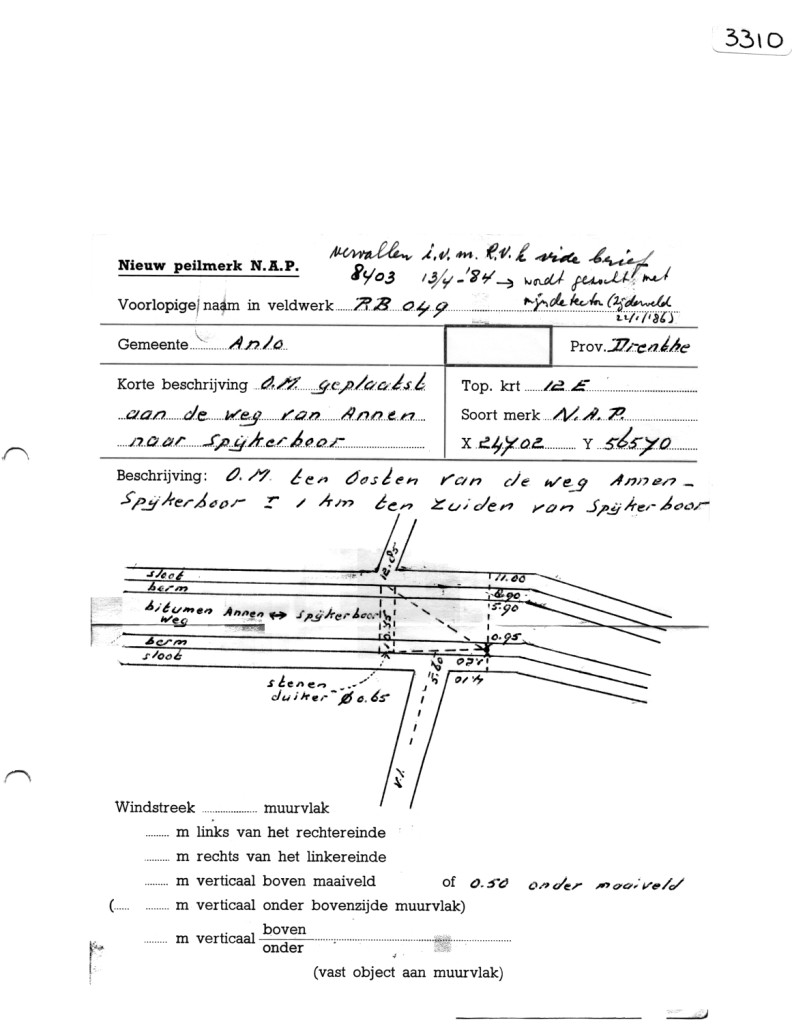 3310
vervallen i.v.m. R.V.k vide brief
Nieuw peilmerk N.A.P.
8403 13/4-'84 → wordt gezocht met
mijndetector (Zijderveld
22/1/'86)
Voorlopige naam in veldwerk RB 049
Gemeente Anlo
Prov. Drenthe
Korte beschrijving O.M. geplaatst
aan de weg van Annen
naar Spijkerboor
Top. krt 12 E
Soort merk N.A.P.
X 24702 Y 56570
Beschrijving: O.M. ten Oosten van de weg Annen-
Spijkerboor I 1 km ten Zuiden van Spijkerboor
12.85
sloot
berm
bitumen Annen ↔ Spijkerboor
weg
berm
sloot
11.00
6.90
5.90
10.55
0.95
5.60
0.20
4.10
stenen
duiker Ø 0.65
v.l.
Windstreek muurvlak
m links van het rechtereinde
m rechts van het linkereinde
m verticaal boven maaiveld of 0.50 onder maaiveld
( m verticaal onder bovenzijde muurvlak)
m verticaal boven
onder
(vast object aan muurvlak)